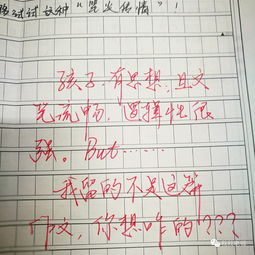 试试这种“萤火传情”！
孩子，有思想，且文
笔流畅，逻辑性很
强。But……
我留的不是这篇
作文，你想咋的???